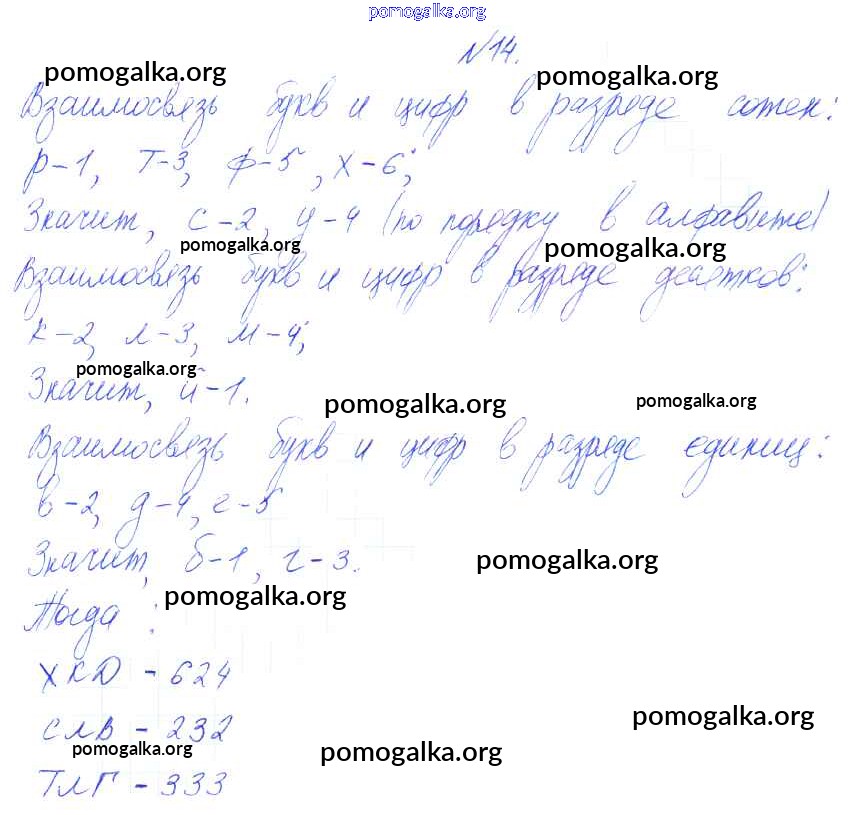 pomogalka.org
№14.
pomogalka.org pomogalka.org
Взаимосвязь букв и цифр в разряде сотен:
р-1, т-3, ф-5, х-6;
Значит, с-2, у-4 (по порядку в алфавите)
pomogalka.org pomogalka.org
Взаимосвязь букв и цифр в разряде десятков:
к-2, л-3, м-4;
pomogalka.org
Значит, й-1.
pomogalka.org pomogalka.org
Взаимосвязь букв и цифр в разряде единиц:
в-2, д-4, е-5
Значит, б-1, г-3.
pomogalka.org
pomogalka.org
Тогда:
ХКД - 624
pomogalka.org
СЛВ - 232
pomogalka.org pomogalka.org
ТЛГ - 333